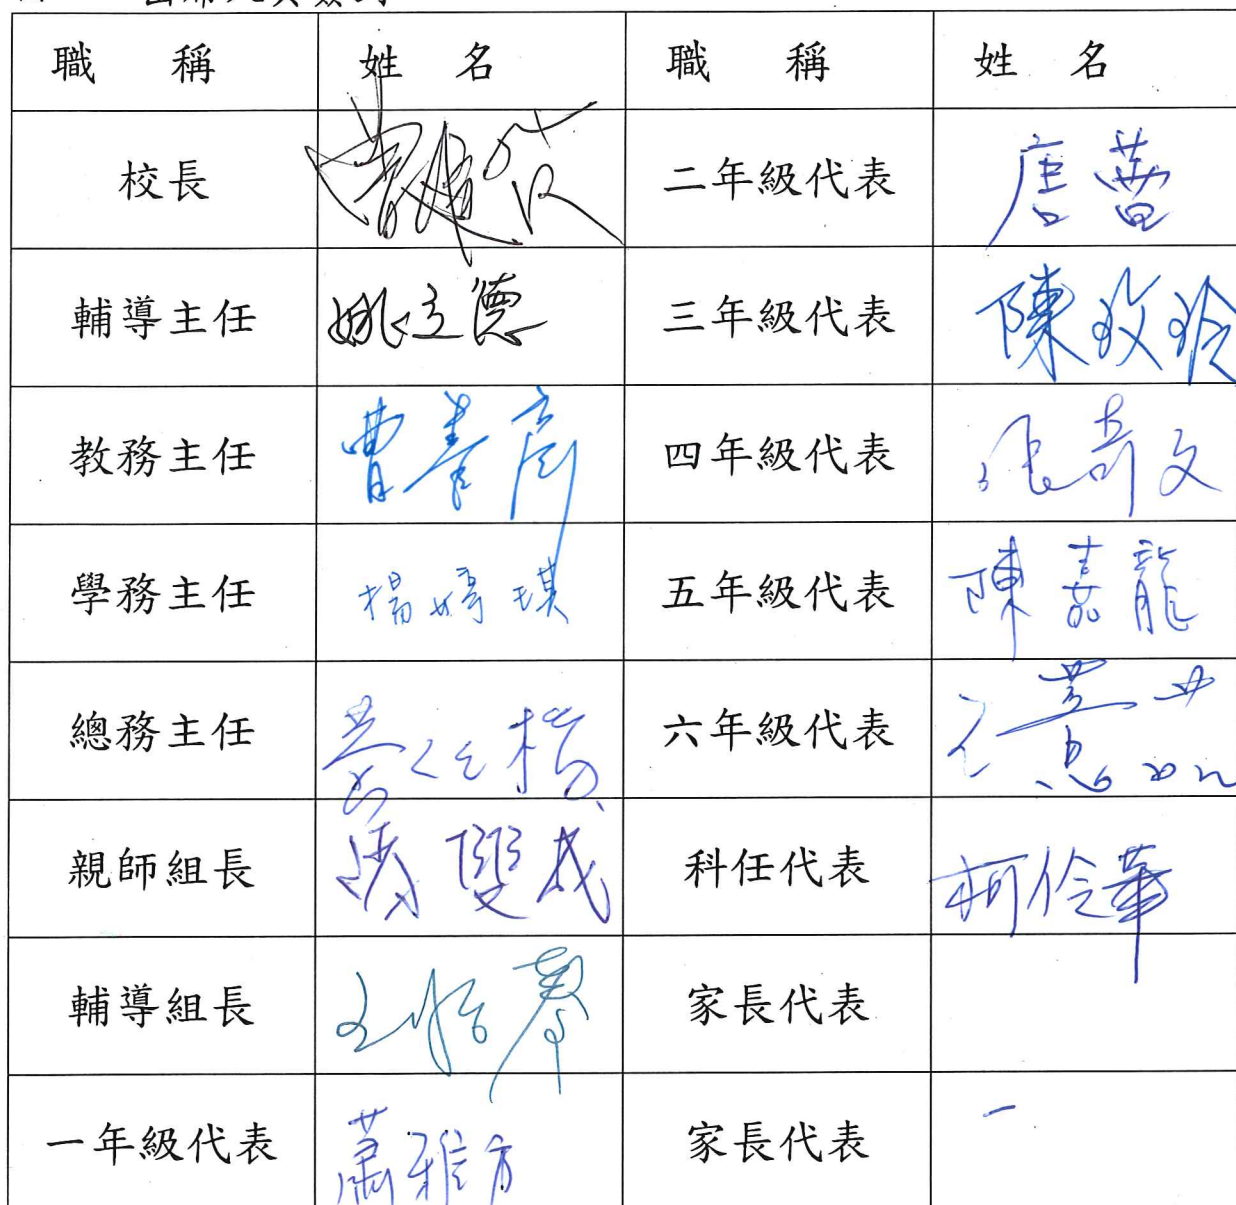 職 稱 姓 名 職 稱 姓 名
校長 二年級代表 唐
輔導主任 姚立德 三年級代表 陳玫玲
教務主任 曹 三年級代表 張奇文
學務主任 楊婷琪 五年級代表 陳嘉龍
總務主任 六年級代表
親師組長 雙成 科任代表 柯伶華
輔導組長 王怡 家長代表
一年級代表 蕭雅方 家長代表